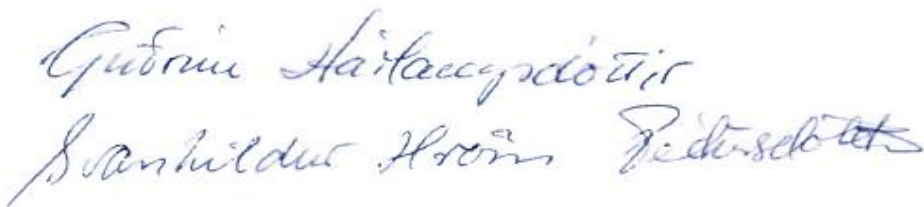 Guðrún Hállaugsdóttir
Svanhildur Hrönn Pétursdóttir